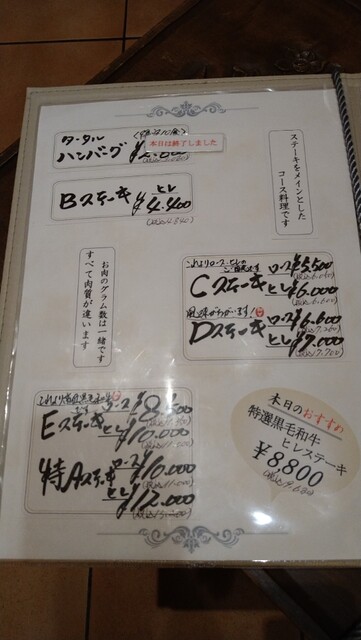 タータル
ハンバーグ
本日は終了しました
ステーキをメインとした
コース料理です
Bステーキ ヒレ ¥4.400
お肉のグラム数は一緒です
すべて肉質が違います
Cステーキ ロース ¥5.500
ヒレ ¥6.000
(税込6.600)
風味がちがいます!
Dステーキ ロース ¥6.600
(税込7.260)
ヒレ ¥7.000
(税込7.700)
Eステーキ ロース
ヒレ ¥10.000
(税込11.000)
特Aステーキ ロース ¥10.000
(税込11.000)
ヒレ ¥12.000
本日のおすすめ
特選黒毛和牛
ヒレステーキ
¥8800
(税込9.680)